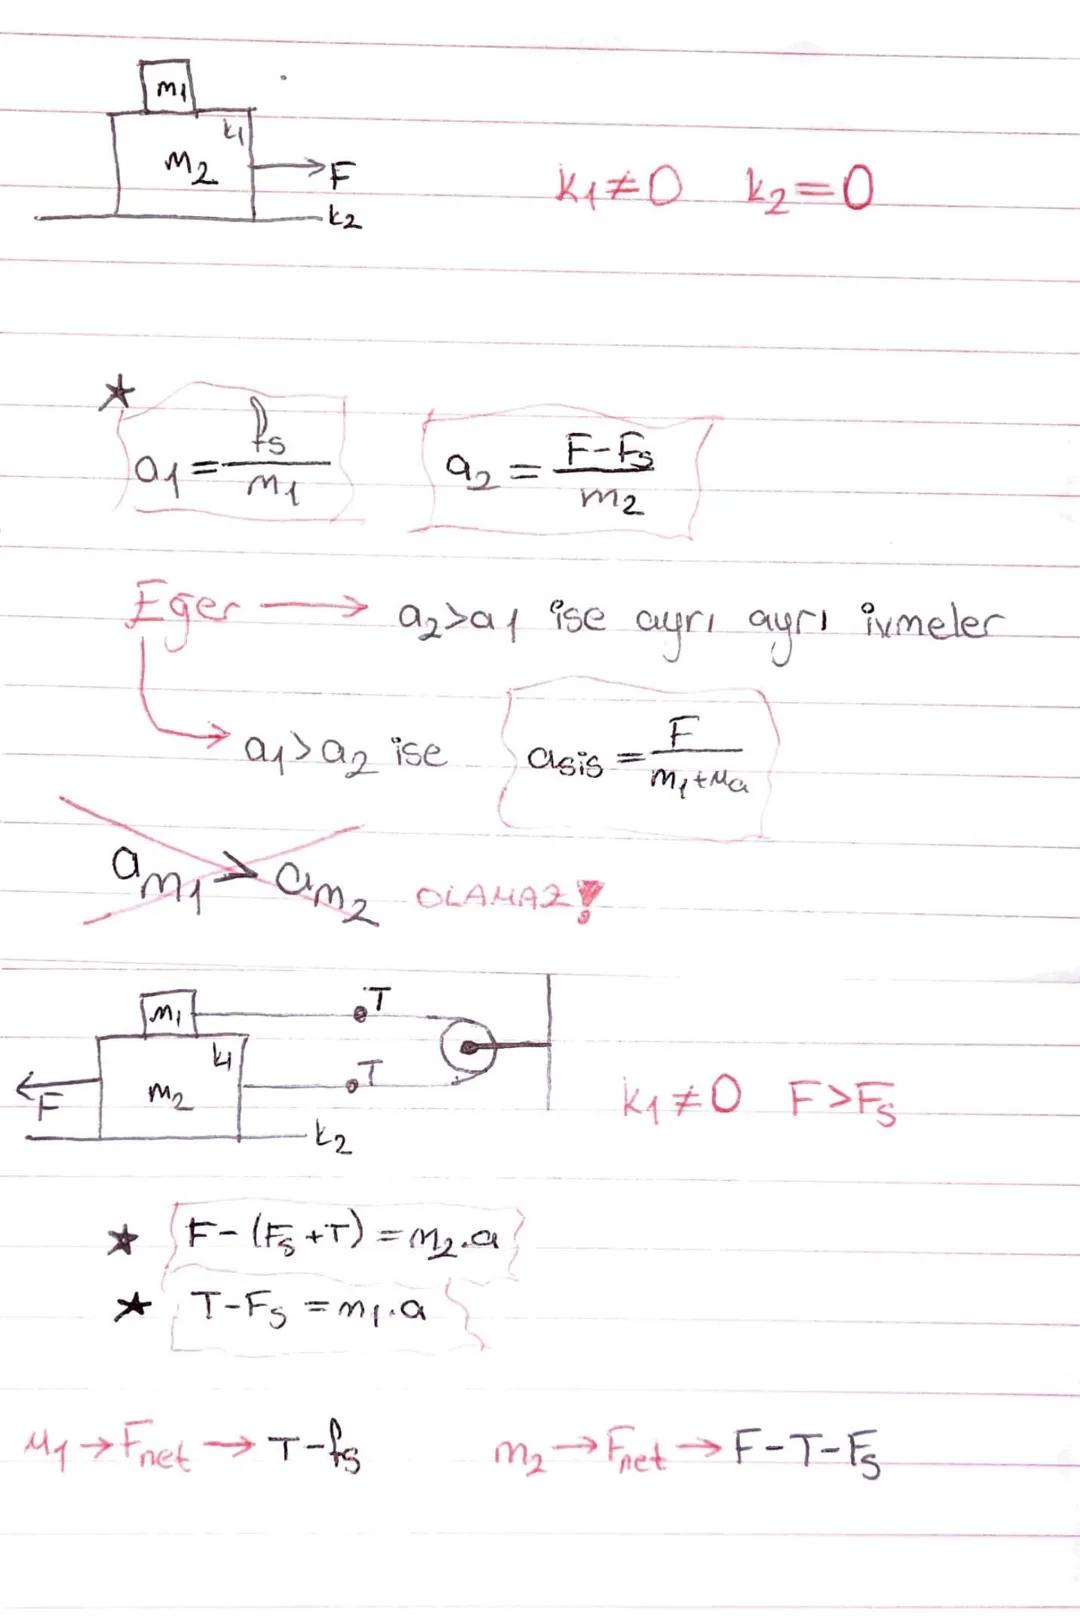 m1
k1
m2
F
k2
k1≠0 k2=0
a1 = fs/m1 a2 = F-Fs/m2
Eğer → a2>a1 ise ayrı ayrı ivmeler
a1>a2 ise asis = F/m1+ma
am1 > am2 OLAMAZ!
m1 T
k1
m2 T
F
k2
k1≠0 F>Fs
F-(Fs+T) = m2.a
T-Fs = m1.a
M1 → Fnet → T-fs m2 → Fnet → F-T-Fs